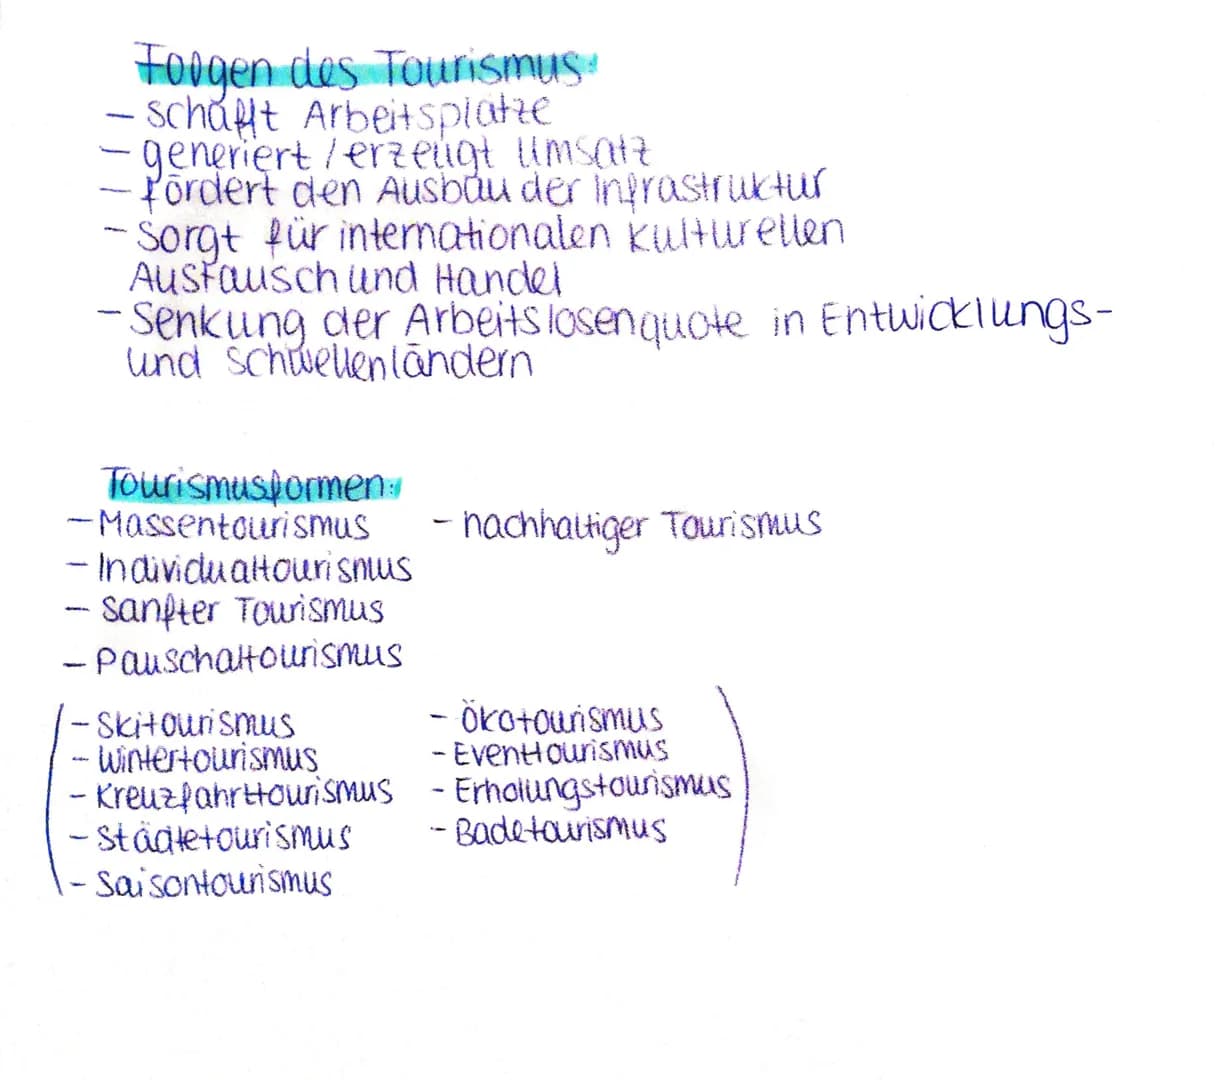 Folgen des Tourismus:
- schafft Arbeitsplätze
- generiert / erzeugt Umsatz
- fördert den Ausbau der Infrastruktur
- sorgt für internationalen kulturellen
Austausch und Handel
- Senkung der Arbeitslosenquote in Entwicklungs-
und Schwellenländern
Tourismusformen:
- Massentourismus
- Individualtourismus
- sanfter Tourismus
- Pauschaltourismus
- nachhaltiger Tourismus
- Skitourismus
- Wintertourismus
- Kreuzfahrttourismus
- Städtetourismus
- Saisontourismus
- Ökotourismus
- Eventtourismus
- Erholungstourismus
- Badetourismus